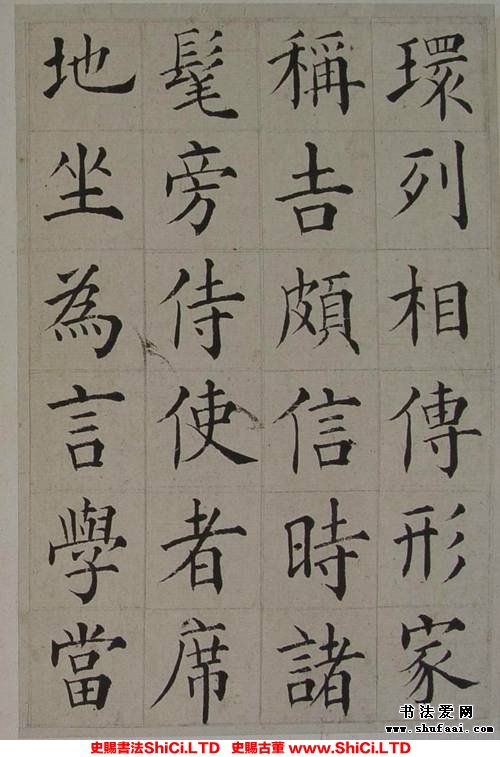 環列相傳形家
稱吉頗信時諸
髦旁侍使者席
地坐為言學當
书法爱网
www.shufaai.com
史賜書法ShiCi.LTD 史賜古董 www.ShiCi.LTD